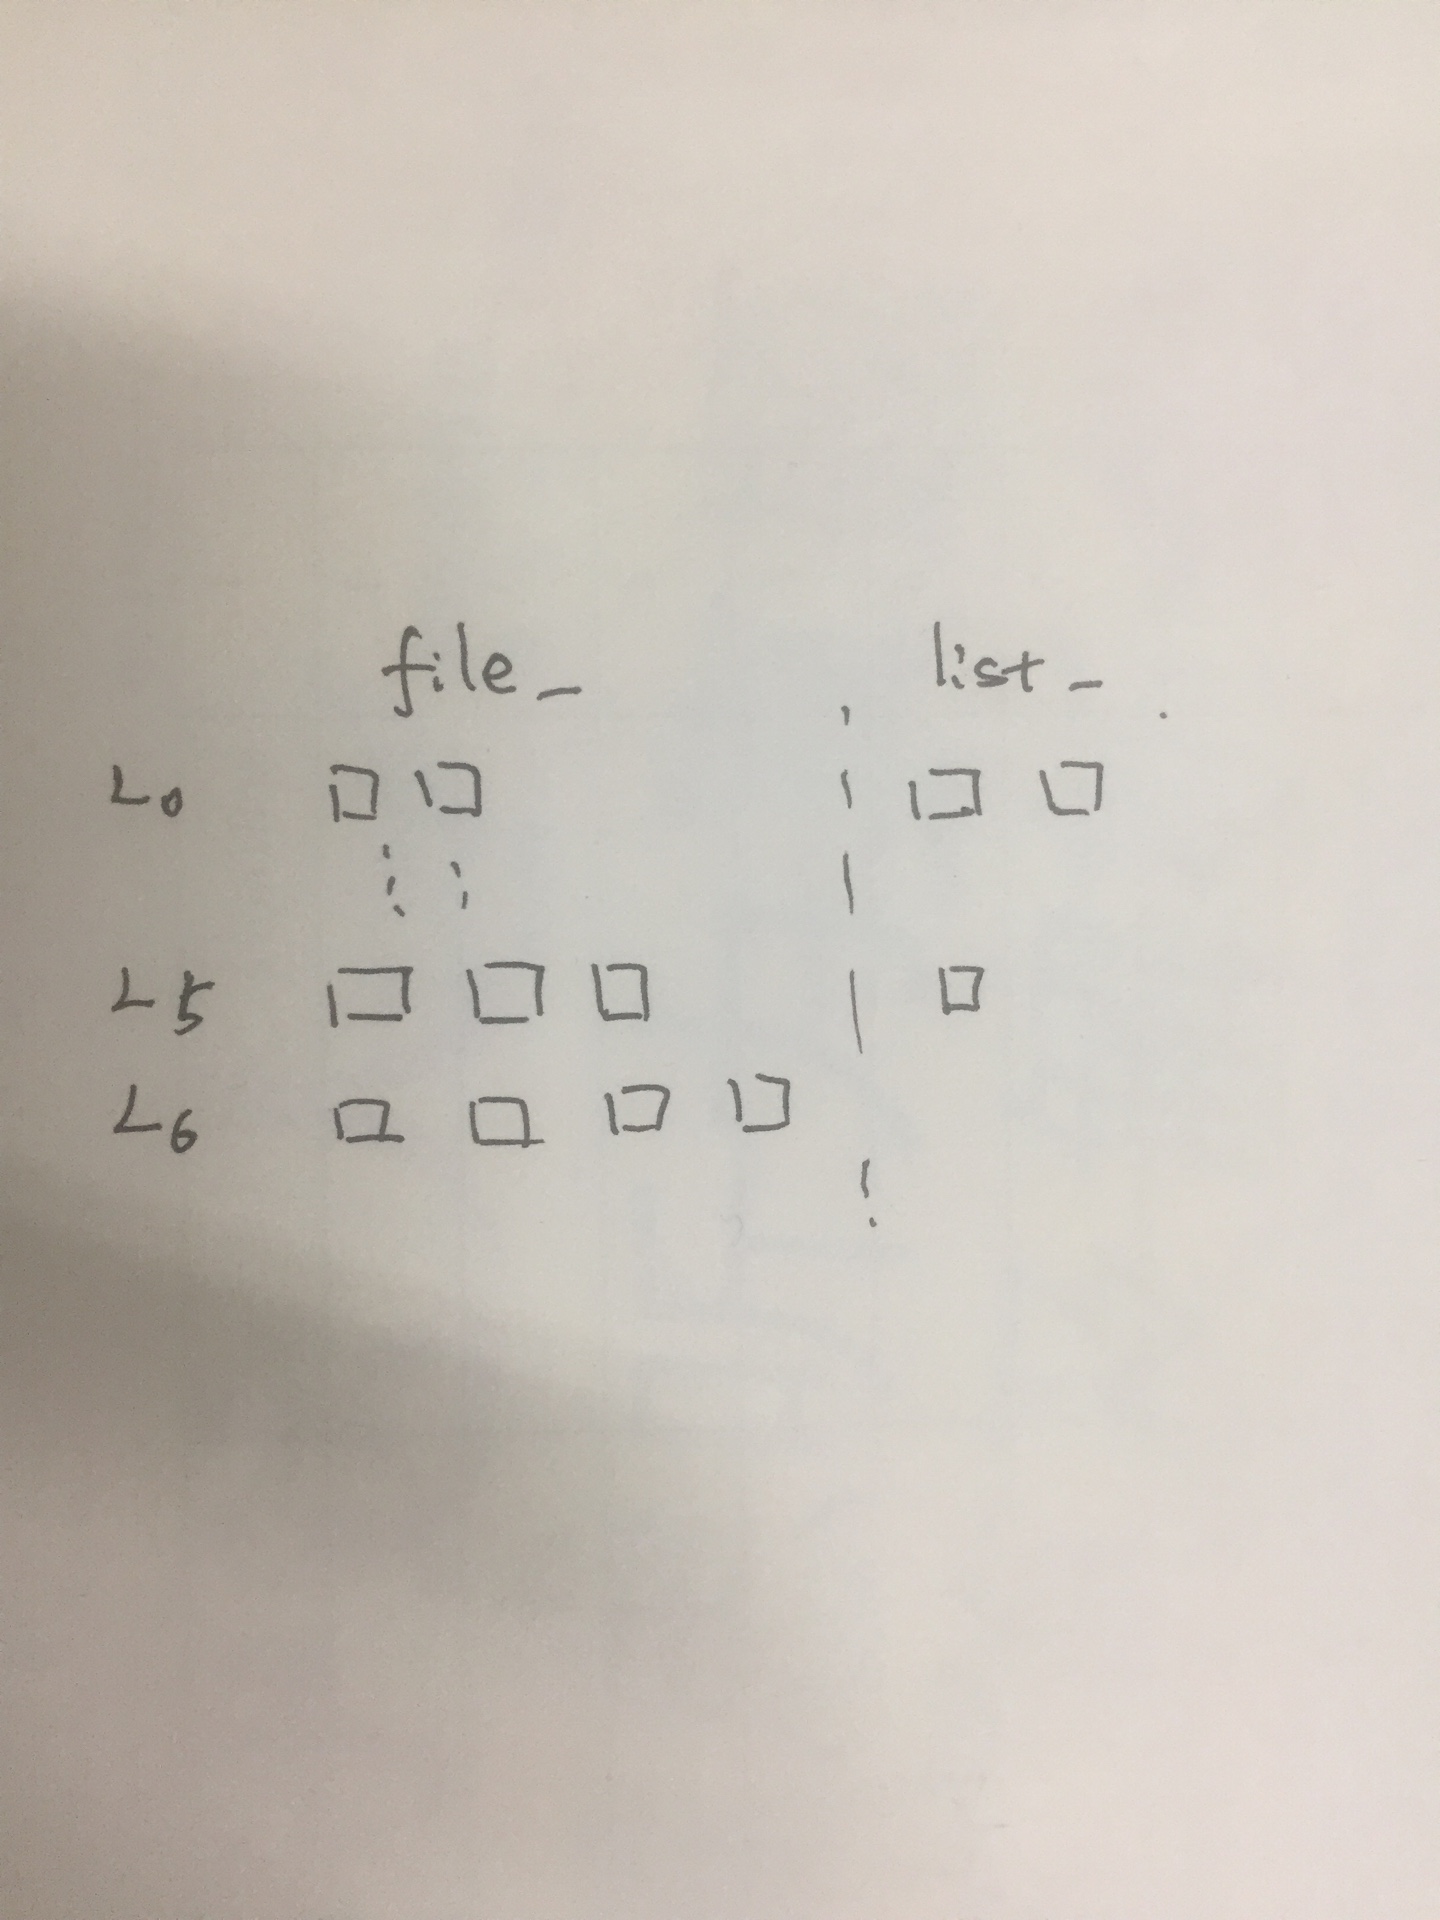 file_ list_
L0
L5
L6